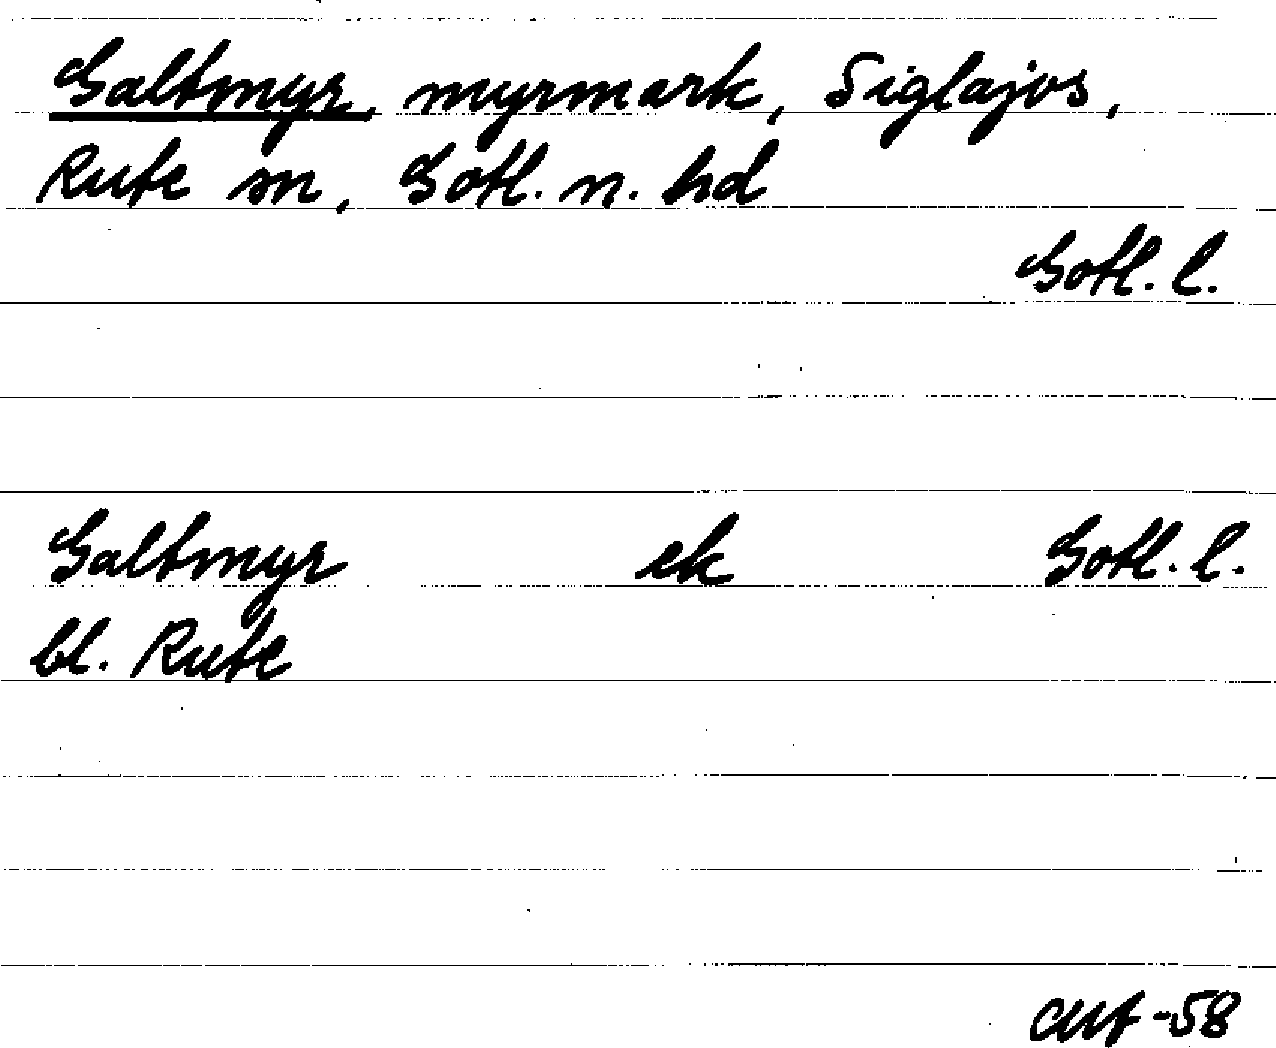 Galtmyr, myrmark, Siglajvs,
Rute sn, Gotl. n. hd
Gotl. l.
Galtmyr ek Gotl. l.
bl. Rute
-58